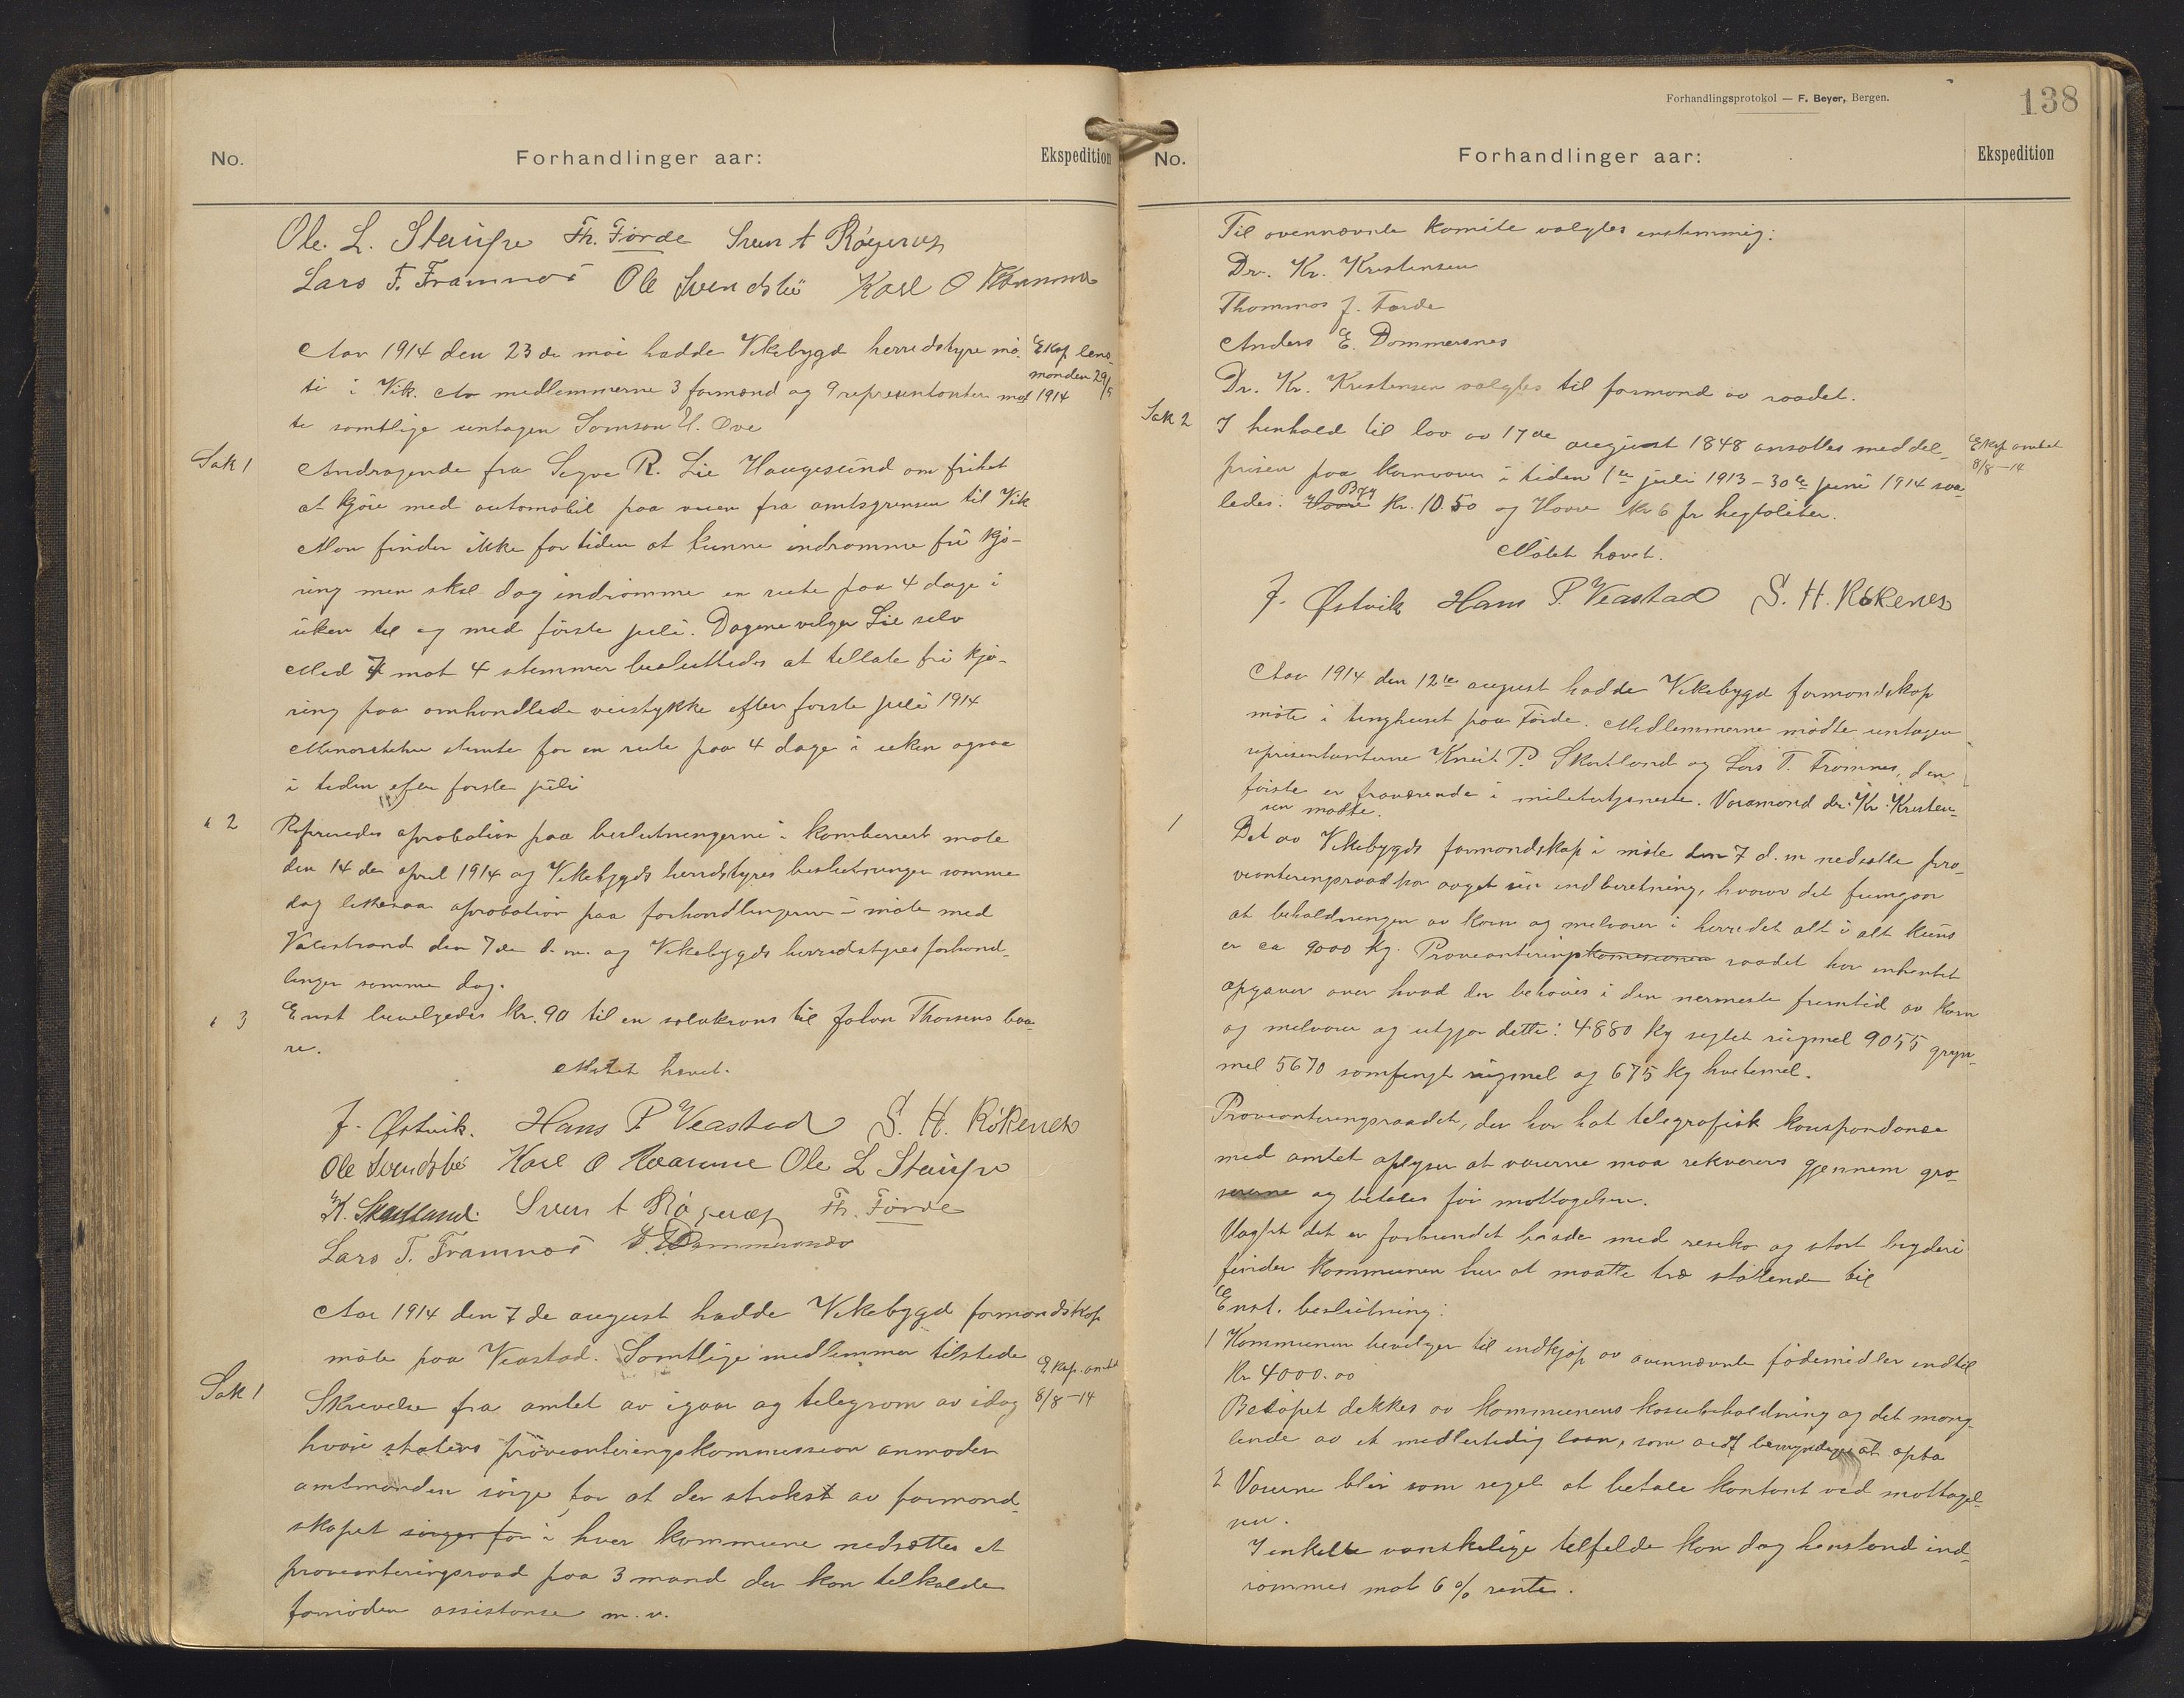 No.
Forhandlinger aar:
Ekspedition
Ole. L. Steinsnes Th. Førde Sven A Røyrvig
Lars T. Framnes Ole Svendsbø Karl O
Aar 1914 den 23de mai hadde Vikebygd herredstyre mø-
te i Vik. Av medlemmerne 3 formænd og 9 representanter møt
te samtlige untagen Samson H. Øve
Eksp lens-
manden 29/5
1914
Sak 1
Andragende fra Sygve R. Lie Haugesund om frihet
at kjøre med automobil paa veien fra amtsgrænsen til Vik
Man finder ikke for tiden at kunne indrømme fri kjø-
ring men skal dog indrømme en rute paa 4 dage i
uken til og med første juli. Dagene velger Lie selv
Med 7 mot 4 stemmer besluttedes at tillate fri kjø-
ring paa omhandlede veistykke efter første juli 1914
Minoriteten stemte for en rute paa 4 dage i uken ogsaa
i tiden efter første juli
" 2
Refereredes aprobation paa beslutningerne i kombinert møte
den 14de april 1914 og Vikebygds herredstyres beslutninger samme
dag likesaa aprobation paa forhandlingerne i møte med
Valestrand den 7de d.m. og Vikebygds herredstyres forhand-
linger samme dag.
" 3
Enst bevilgedes kr. 90 til en sølvkrans til Johan Thorsens baa-
re.
Møtet hævet.
J. Østvik. Hans P. Veastad S. H. Røkenes
Ole Svendsbø Karl O Ole L Steinsnes
K. Skartland. Sven A Røyrvig Th. Førde
Lars T. Framnes
Aar 1914 den 7de august hadde Vikebygd formandskap
møte paa Veastad. Samtlige medlemmer tilstede
Sak 1
Eksp. amtet
8/8-14
Skrivelse fra amtet av igaar og telegram av idag
hvori statens provianteringskommission anmoder
amtmanden sørge for at der strakst av formand-
skapet sørger for i hver kommune nedsættes et
provianteringsraad paa 3 mand der kan tilkalde
fornøden assistanse m.v.
Forhandlingsprotokol — F. Beyer, Bergen.
138
No.
Forhandlinger aar:
Ekspedition
Til ovennævnte komite valgtes enstemmig:
Dr. Kr. Kristensen
Thommas J. Førde
Anders E. Dommersnes
Dr. Kr. Kristensen valgtes til formand av raadet.
Sak 2
I henhold til lov av 17de august 1848 ansattes middel-
prisen paa kornvarer i tiden 1ste juli 1913 - 30te juni 1914 saa-
ledes: Havre Byg Kr. 10.50 og Havre Kr 6 pr hegtoliter.
Eksp amtet
8/8-14
Møtet hævet.
J. Østvik Hans P. Veastad S. H. Røkenes
Aar 1914 den 12te august hadde Vikebygd formandskap
møte i tinghuset paa Førde. Medlemmerne mødte untagen
representanterne Kneut P. Skartland og Lars T. Framnes, den
første er fraværende i militærtjeneste. Varamand dr. Kr. Kristen-
sen mødte.
1
Det av Vikebygds formandskap i møte den 7 d.m nedsatte pro-
vianteringsraad har avgit sin indberetning, hvorav det fremgaar
at beholdningen av korn og melvarer i herredet alt i alt kuns
er ca 9000 kg. Provianteringskomissionen raadet har inhentet
opgaver over hvad der behøves i den nærmeste fremtid av korn
og melvarer og utgjør dette: 4880 kg sigtet rugmel 9055 gryn-
mel 5670 samfengt rugmel og 675 kg hvetemel.
Provianteringsraadet, der har hat telegrafisk korrespondanse
med amtet oplyser at varerne maa rekvireres gjennem gro-
sererne og betales før mottagelsen.
Uagtet det er forbundet baade med resiko og stort bryderi
finder kommunen her at maatte træ støttende til
Enst. beslutning:
1 Kommunen bevilger til indkjøp av ovennævnte fødemidler indtil
Kr 4000.00
Beløpet dekkes av kommunens kassebeholdning og det mang-
lende av et midlertidig laan, som ordf bemyndiges at opta
2 Varerne blir som regel at betale kontant ved mottagel-
sen.
I enkelte vanskelige tilfelde kan dog henstand ind-
rømmes mot 6 % rente.